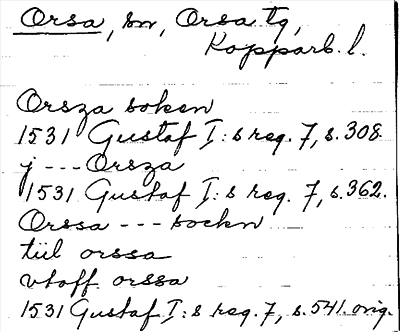 Orsa, sn, Orsa tg,
Kopparb. l.
Orsza soken
1531 Gustaf I:s reg. 7, s. 308.
j --- Orsza
1531 Gustaf I:s reg. 7, s. 362.
Orssa --- sockn
tiil orssa
vtaff orssa
1531 Gustaf I:s reg. 7, s. 541. orig.